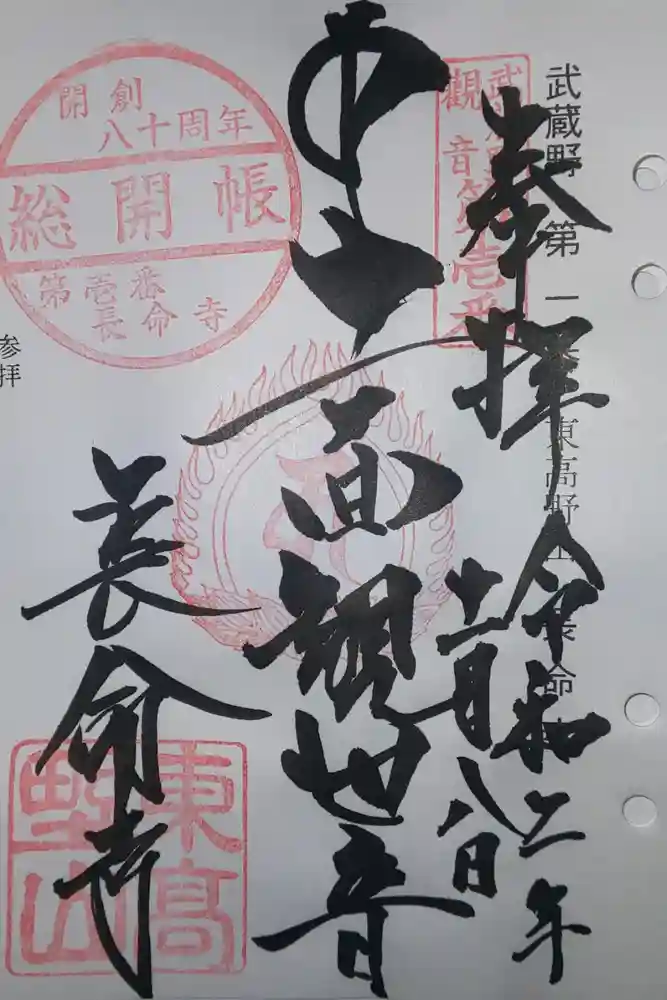 武蔵野 第一番 東高野山 長命寺
奉拝 令和二年
十一月八日
武蔵野
觀音第壱番
十一面観世音
長命寺
開創
八十周年
総開帳
第壱番
長命寺
東高
野山
参拝